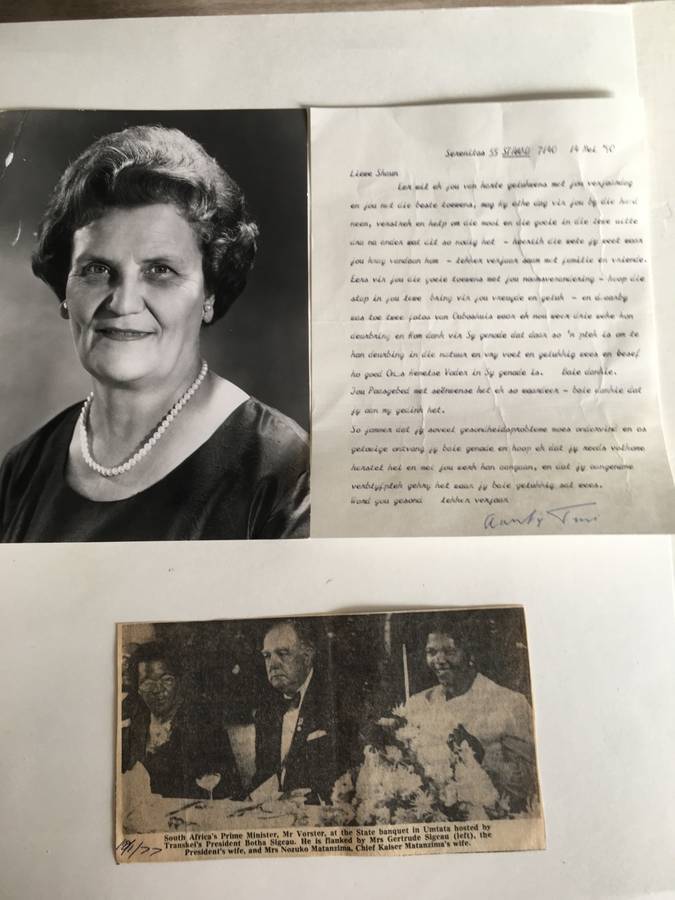 Serenitas 55 STRAND 7140 14 Mei '90
Lieve Shaun
en jou net die beste toewens, mag Hy elke dag vir jou by die hand
neem, versterk en help om die mooi en die goeie in die lewe uitte
dra na ander wat dit so nodig het - heerlik die wete jy weet waar
jou krag vandaan kom - lekker verjaar saam met familie en vriende.
Eers vir jou die goeie toewens met jou naamsverandering - hoop die
stap in jou lewe bring vir jou vreugde en geluk - en daarby
twee fotos van Oubos waar ek nou weer drie weke kon
deurbring en Hom dank vir Sy genade dat daar so 'n plek is om te
kan deurbring in die natuur en vry voel en gelukkig wees en besef
ho goed Ons Hemelse Vader in Sy genade is. Baie dankie.
Jou Paasgebed met seënwense het ek so waardeer - baie dankie dat
jy aan my gedink het.
So jammer dat jy soveel gesondheidsprobleme moes ondervind en as
gelowige ontvang jy baie genade en hoop ek dat jy reeds volkome
herstel het en met jou werk kan aangaan, en dat jy aangename
verblyfplek gekry het waar jy baie gelukkig sal wees.
Word gou gesond lekker verjaar
South Africa's Prime Minister, Mr Vorster, at the State banquet in Umtata hosted by
Transkei's President Botha Sigcau. He is flanked by Mrs Gertrude Sigcau (left), the
President's wife, and Mrs Nozuko Matanzima, Chief Kaiser Matanzima's wife.